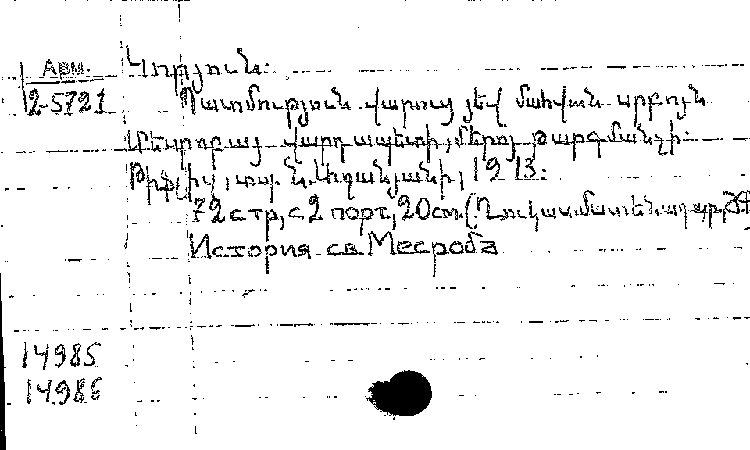 Арм.
2-5721
Կորյուն:
Պատմություն վարուց յեվ մահվան սրբույն
Մեսրոբայ վարդապետի, մերոյ թարգմանչի:
Թիֆլիս, տպ. Ն. Աղանյանի, 1913:
72 стр, с 2 порт, 20см. (Ղուկասյան մատենադար,
История св. Месроба
14985
14986